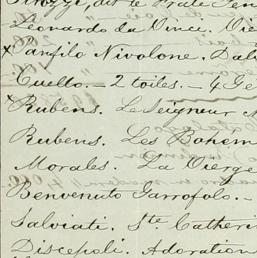 Strozzi, dit le Prete Gen
Leonardo da Vince. Vie
x Panfilo Nivolone. Dal
Cuello. — 2 toiles. — 4 Ge
x Rubens. Le Seigneur M
Rubens. Les Bohem
Morales. La Vierge
Benvenuto Garrofolo. —
Salviati. Ste. Catheri
Discepoli. Adoration